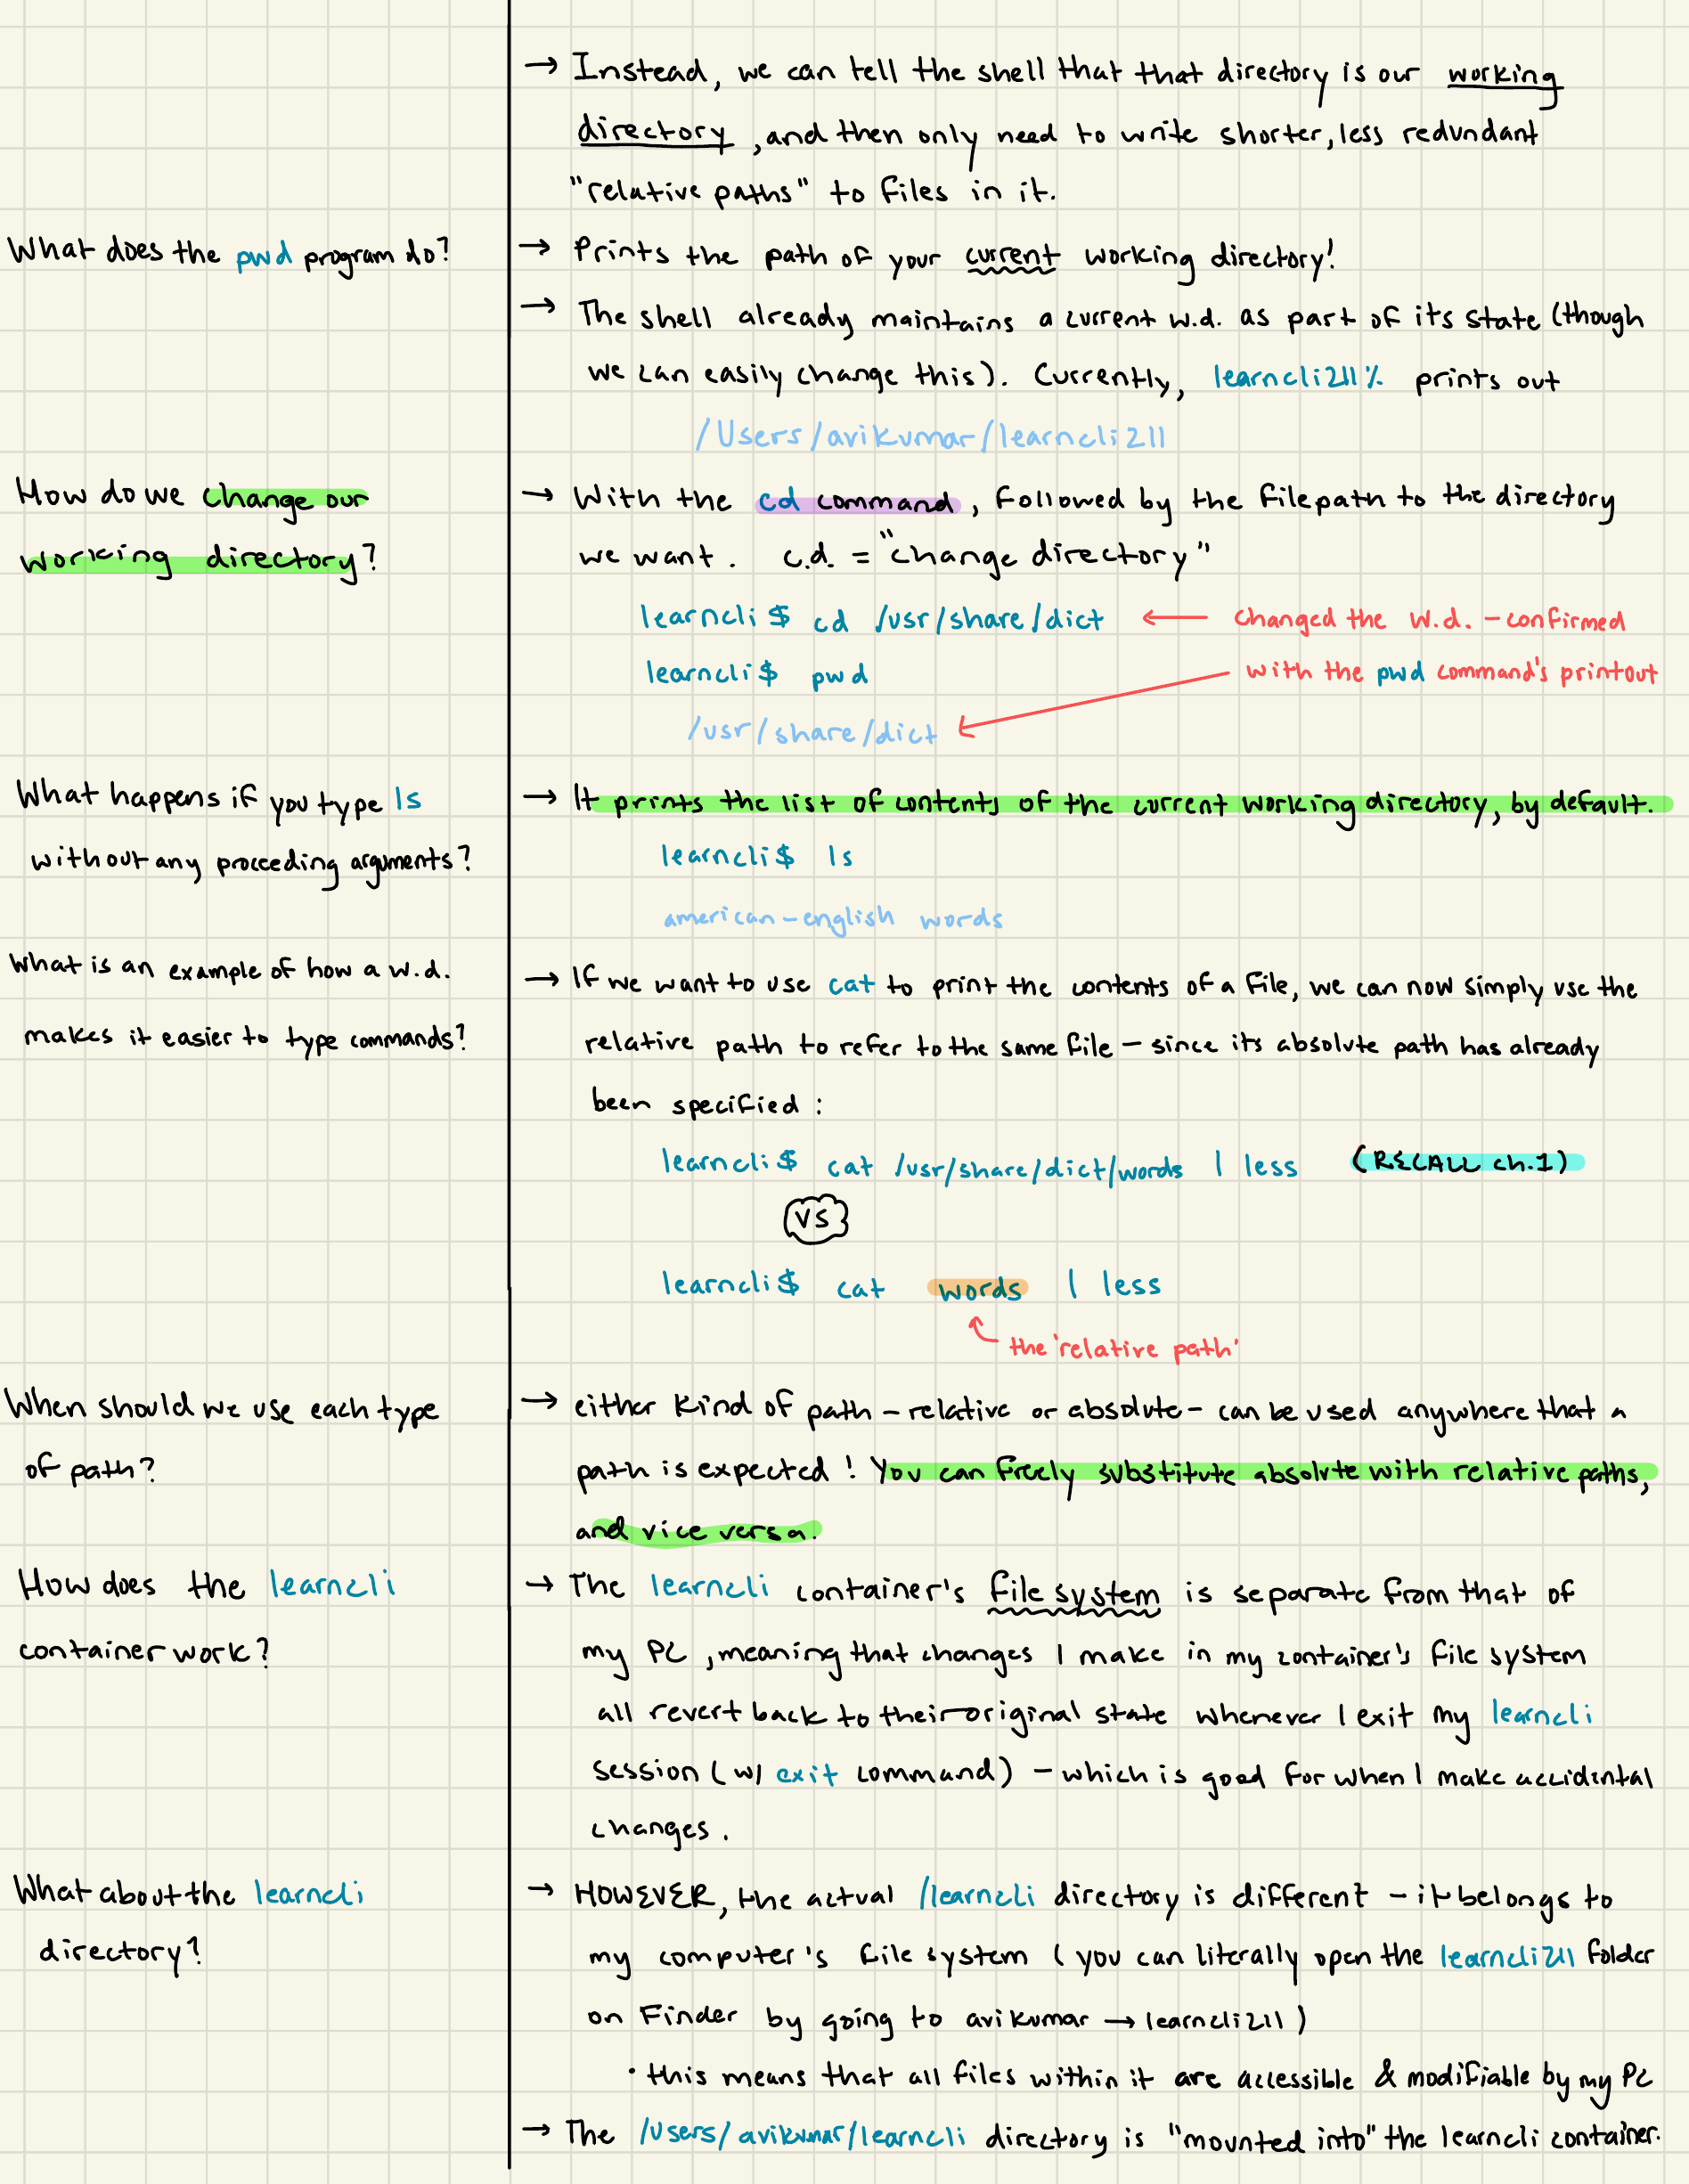 → Instead, we can tell the shell that that directory is our working
directory, and then only need to write shorter, less redundant
"relative paths" to files in it.
What does the pwd program do?
→ Prints the path of your current working directory!
→ The shell already maintains a current w.d. as part of its state (though
we can easily change this). Currently, learncli211% prints out
/Users/avikumar/learncli211
How do we change our
working directory?
→ With the cd command, followed by the filepath to the directory
we want. c.d. = "change directory"
learncli$ cd /usr/share/dict ← changed the w.d. - confirmed
learncli$ pwd with the pwd command's printout
/usr/share/dict ←
What happens if you type ls
without any proceeding arguments?
→ It prints the list of contents of the current working directory, by default.
learncli$ ls
american-english words
What is an example of how a w.d.
makes it easier to type commands?
→ If we want to use cat to print the contents of a file, we can now simply use the
relative path to refer to the same file - since its absolute path has already
been specified:
learncli$ cat /usr/share/dict/words | less (RECALL ch.1)
VS
learncli$ cat words | less
the 'relative path'
When should we use each type
of path?
→ either kind of path - relative or absolute - can be used anywhere that a
path is expected! You can freely substitute absolute with relative paths,
and vice versa.
How does the learncli
container work?
→ The learncli container's file system is separate from that of
my PC, meaning that changes I make in my container's file system
all revert back to their original state whenever I exit my learncli
session (w/ exit command) - which is good for when I make accidental
changes.
What about the learncli
directory?
→ HOWEVER, the actual /learncli directory is different - it belongs to
my computer's file system (you can literally open the learncli211 folder
on Finder by going to avikumar → learncli211)
• this means that all files within it are accessible & modifiable by my PC
→ The /users/avikumar/learncli directory is "mounted into" the learncli container.